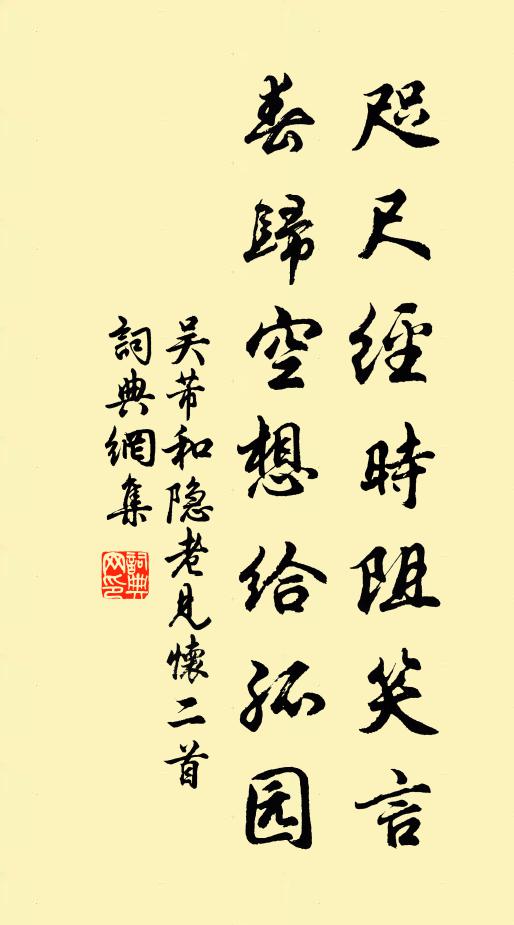 咫尺經時阻笑言
春歸空想给孤园
吴芾和隐老見懷二首
詞典網集
詞典網印